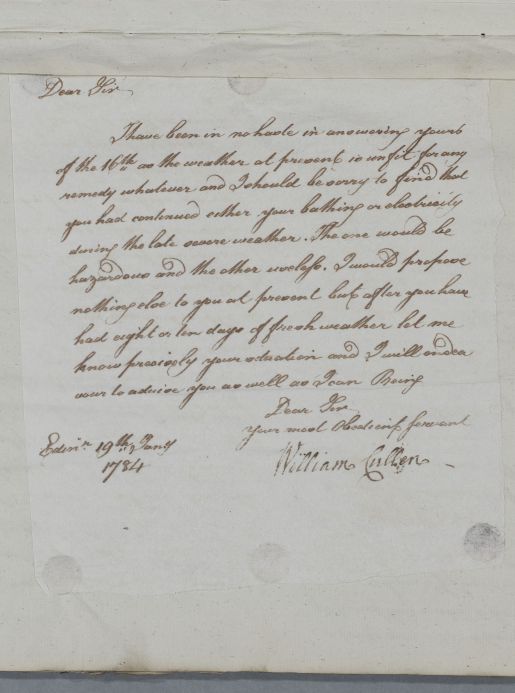 Dear Sir
I have been in no haste in answering yours
of the 16th as the weather at present is unfit for any
remedy whatever and I should be sorry to find that
you had continued either your bathing or electricity
during the late severe weather. The one would be
hazardous and the other useless. I would propose
nothing else to you at present but after you have
had eight or ten days of fresh weather let me
know precisely your situation and I will endea
vour to advise you as well as I can Being
Dear Sir
your most Obedient servant
Edinr 19th Jany
1784
William Cullen